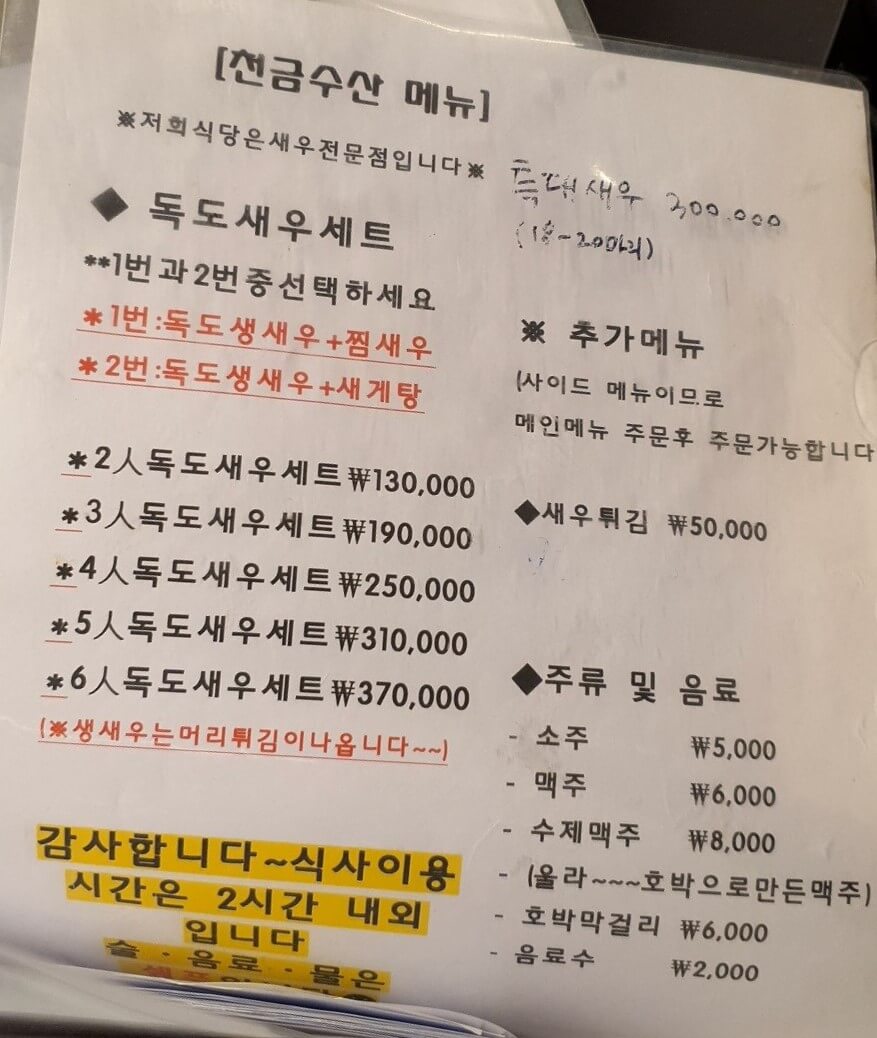 [천금수산 메뉴]
※저희식당은새우전문점입니다※
◆ 독도새우세트
**1번과2번중선택하세요
*1번:독도생새우+찜새우
*2번:독도생새우+새게탕
*2人독도새우세트₩130,000
*3人독도새우세트₩190,000
*4人독도새우세트₩250,000
*5人독도새우세트₩310,000
*6人독도새우세트₩370,000
(※생새우는머리튀김이나옵니다~~)
감사합니다~식사이용
시간은 2시간 내외
입니다
술·음료·물은
특대새우 300.000
※ 추가메뉴
(사이드 메뉴이므로
메인메뉴 주문후 주문가능합니다
◆새우튀김 ₩50,000
◆주류 및 음료
- 소주 ₩5,000
- 맥주 ₩6,000
- 수제맥주 ₩8,000
- (울라~~~호박으로만든맥주)
- 호박막걸리 ₩6,000
- 음료수 ₩2,000